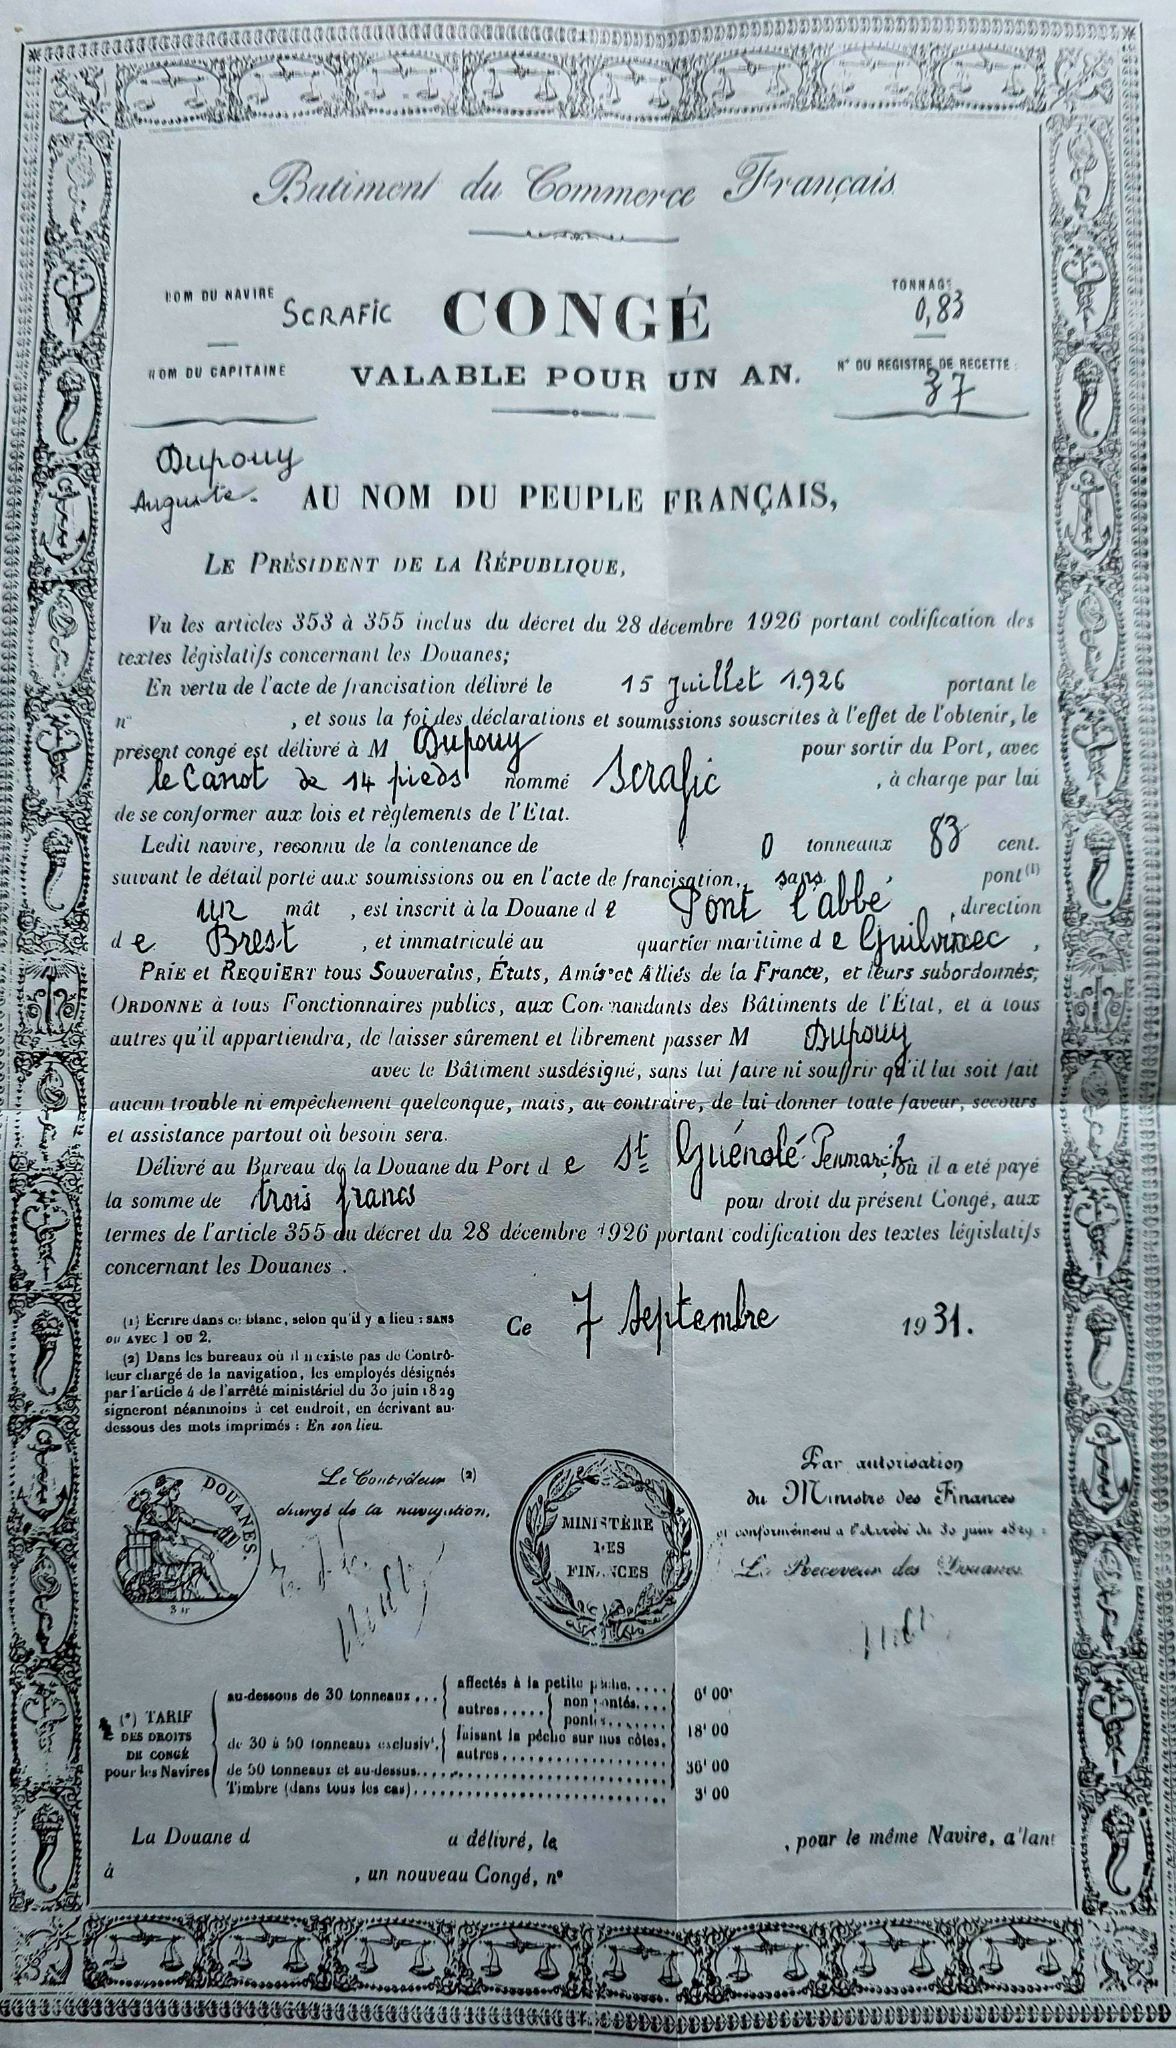 Batiment du Commerce Français
NOM DU NAVIRE
SCRAFIC
CONGÉ
TONNAGE
0,83
NOM DU CAPITAINE
VALABLE POUR UN AN.
N° DU REGISTRE DE RECETTE:
37
Dupouy
Auguste.
AU NOM DU PEUPLE FRANÇAIS,
LE PRÉSIDENT DE LA RÉPUBLIQUE,
Vu les articles 353 à 355 inclus du décret du 28 décembre 1926 portant codification des
textes législatifs concernant les Douanes;
En vertu de l'acte de francisation délivré le 15 Juillet 1926 portant le
n° , et sous la foi des déclarations et soumissions souscrites à l'effet de l'obtenir, le
présent congé est délivré à M Dupouy pour sortir du Port, avec
le Canot de 14 pieds nommé Scrafic , à charge par lui
de se conformer aux lois et règlements de l'Etat.
Ledit navire, reconnu de la contenance de 0 tonneaux 83 cent.
suivant le détail porté aux soumissions ou en l'acte de francisation, sans pont (1)
un mât , est inscrit à la Douane d e Pont l'abbé , direction
d e Brest , et immatriculé au quartier maritime d e Guilvinec ,
PRIE et REQUIERT tous Souverains, États, Amis et Alliés de la France, et leurs subordonnés;
ORDONNE à tous Fonctionnaires publics, aux Commandants des Bâtiments de l'État, et à tous
autres qu'il appartiendra, de laisser sûrement et librement passer M Dupouy
avec le Bâtiment susdésigné, sans lui faire ni souffrir qu'il lui soit fait
aucun trouble ni empêchement quelconque, mais, au contraire, de lui donner toute faveur, secours
et assistance partout où besoin sera.
Délivré au Bureau de la Douane du Port d e St Guénolé Penmarch, où il a eté payé
la somme de trois francs pour droit du présent Congé, aux
termes de l'article 355 du décret du 28 décembre 1926 portant codification des textes législatifs
concernant les Douanes .
(1) Ecrire dans ce blanc, selon qu'il y a lieu : SANS
OU AVEC 1 OU 2.
(2) Dans les bureaux où il n existe pas de Contrô-
leur chargé de la navigation, les employés désignés
par l'article 4 de l'arrêté ministériel du 30 juin 1829
signeront néanmoins à cet endroit, en écrivant au-
dessous des mots imprimés : En son lieu.
Ce 7 Septembre 1931.
DOUANES.
Le Contrôleur (2)
chargé de la navigation,
MINISTÈRE
DES
FINANCES
Par autorisation
du Ministre des Finances
et conformément a l'Arrêté du 30 juin 1829:
Le Receveur des Douanes
(*) TARIF
DES DROITS
DE CONGÉ
pour les Navires
au-dessous de 30 tonneaux... affectés à la petite pêche..... 6f 00
autres..... non pontés....
pontés.......
de 30 à 50 tonneaux exclusivt. faisant la pêche sur nos côtes. 18f 00
autres
de 50 tonneaux et au-dessus 36f 00
Timbre (dans tous les cas) 3f 00
La Douane d a délivré, le , pour le même Navire, a'lant
à , un nouveau Congé, n°